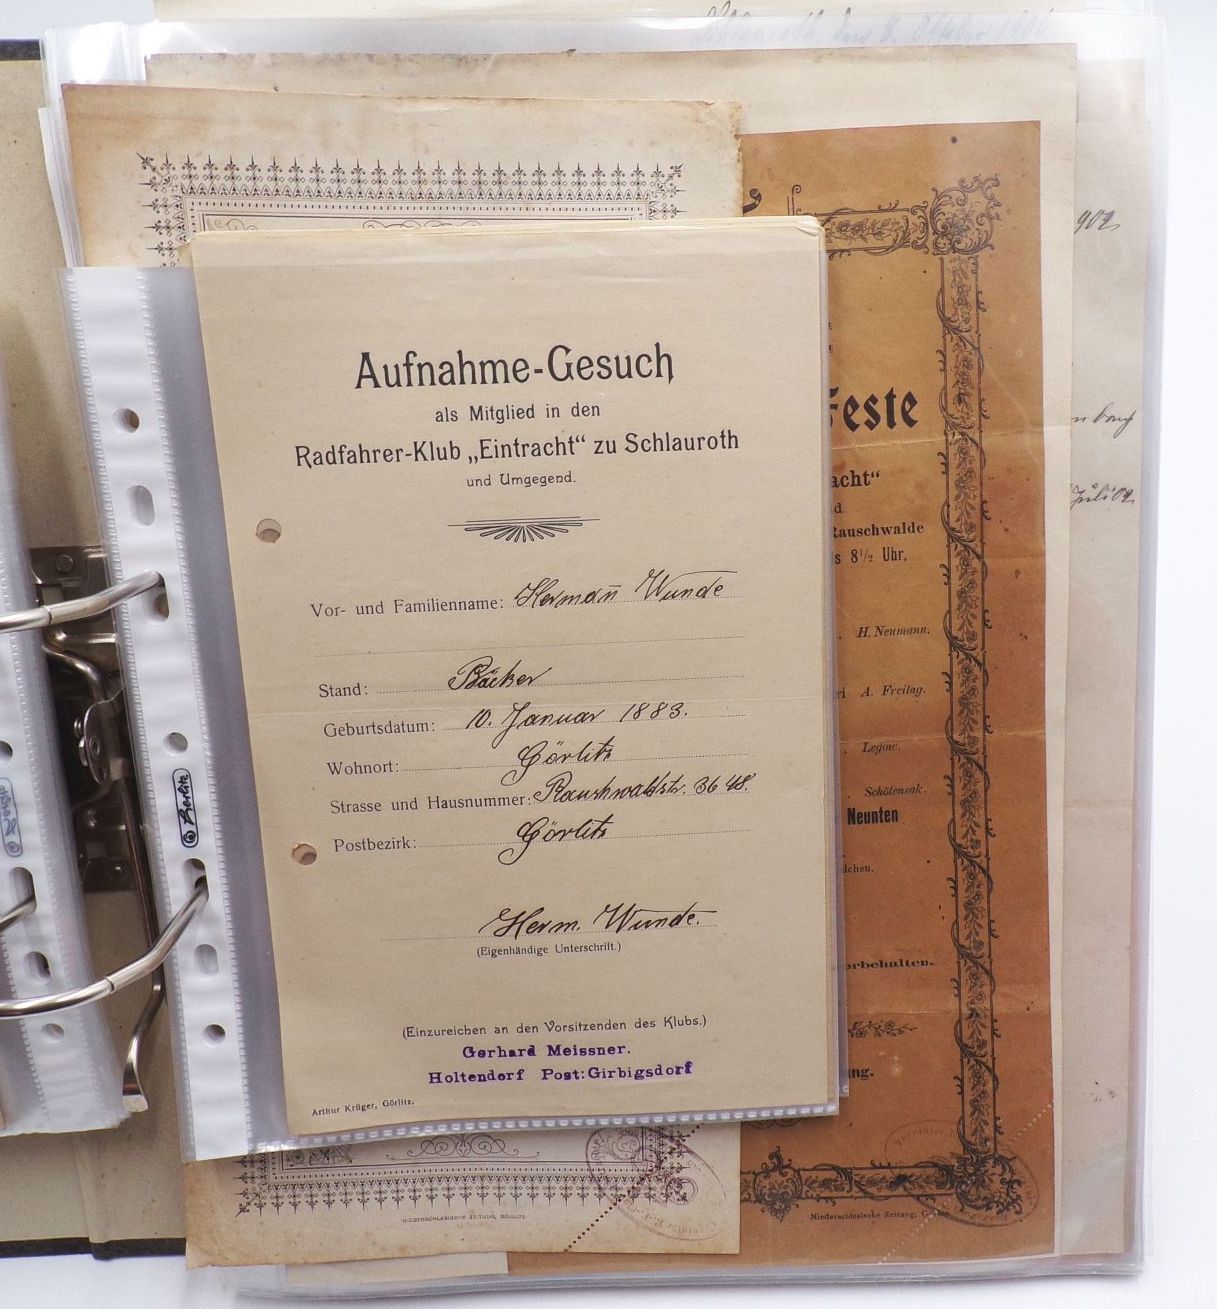 Aufnahme-Gesuch
als Mitglied in den
Radfahrer-Klub „Eintracht“ zu Schlauroth
und Umgegend.
Vor- und Familienname: Hermañ Wunde
Stand: Bäcker
Geburtsdatum: 10. Januar 1883.
Wohnort: Görlitz
Strasse und Hausnummer: Rauschwaldstr. 36
Postbezirk: Görlitz
Herm. Wunde.
(Eigenhändige Unterschrift.)
(Einzureichen an den Vorsitzenden des Klubs.)
Gerhard Meissner.
Holtendorf Post:Girbigsdorf
Arthur Krüger, Görlitz.
NIEDERSCHLESISCHE ZEITUNG, GÖRLITZ.
Feste
acht“
d
Rauschwalde
s 8½ Uhr.
H. Neumann.
ri A. Freitag.
Legow.
Schötensak.
Neunten
dchen.
orbehalten.
ng.
Niederschlesische Zeitung, Gö
den 8. Oktober 190
902
Juli 02
Herlitz